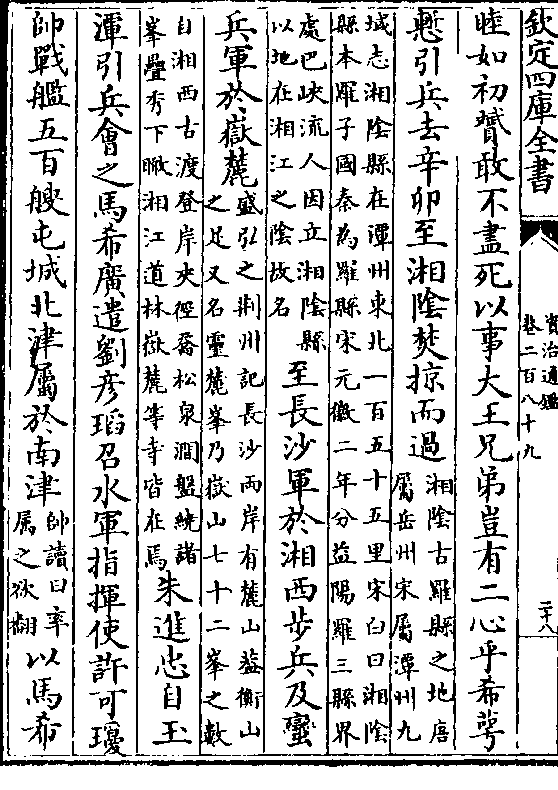 欽定四庫全書
資治通鑑
卷二百八十九
二十八
睦如初贇敢不盡死以事大王兄弟豈有二心乎希萼
慙引兵去辛卯至湘陰焚掠而過
湘陰古羅縣之地唐
屬岳州宋屬潭州九
域志湘陰縣在潭州東北一百五十五里宋白曰湘陰
縣本羅子國秦為羅縣宋元徽二年分益陽羅三縣界
處巴峽流人因立湘陰縣
以地在湘江之陰故名
至長沙軍於湘西步兵及蠻
兵軍於嶽麓
盛弘之荆州記長沙西岸有麓山葢衡山
之足又名靈麓峯乃嶽山七十二峯之數
自湘西古渡登岸夾徑喬松泉澗盤繞諸
峯疊秀下瞰湘江道林嶽麓等寺皆在焉
朱進忠自玉
潭引兵會之馬希廣遣劉彦瑫召水軍指揮使許可瓊
帥戰艦五百艘屯城北津屬於南津
帥讀曰率
屬之欲翻
以馬希